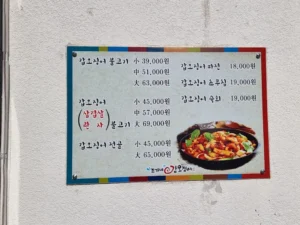 갑오징어 불고기 小 39,000원
中 51,000원
大 63,000원
갑오징어 小 45,000원
(삼겹살) 불고기 中 57,000원
大 69,000원
갑오징어 전골 小 45,000원
大 65,000원
갑오징어 파전 18,000원
갑오징어 초무침 19,000원
갑오징어 숙회 19,000원
갑오징어